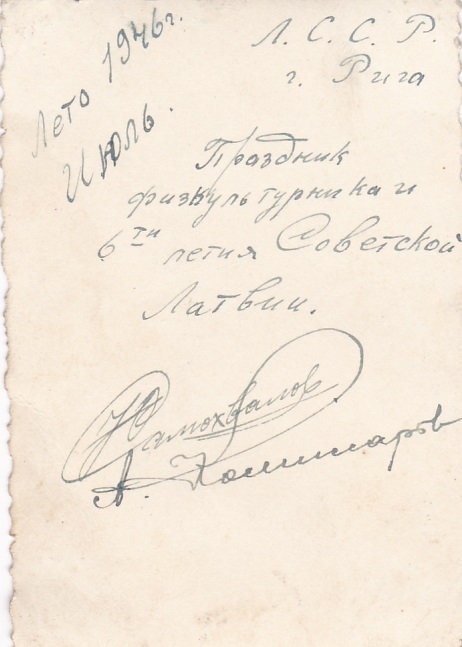 Лето 1946г.
Июль.
Л. С. С. Р.
г. Рига
Праздник
физкультурника и
6ти летия Советской
Латвии.
Самохвалов
А.